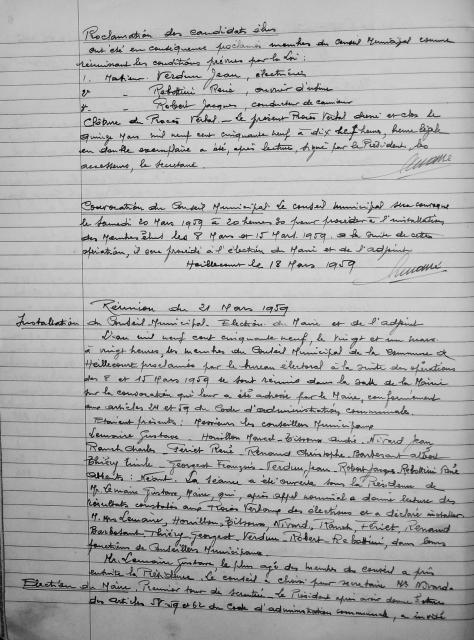 Proclamation des candidats élus
ont été en conséquence proclamés membres du Conseil Municipal comme
réunissant les conditions prévues par la loi:
1. Messieurs Verdun Jean, électricien
2. - Robottini René, ouvrier d'usine
3. - Robert Jacques, conducteur de camion
Clôture du Procès Verbal - le présent Procès Verbal dressé et clos le
quinze Mars mil neuf cent cinquante neuf à dix heures, heure légale
en double exemplaire a été, après lecture, signé par le Président, les
assesseurs, le secrétaire.
Convocation du Conseil Municipal le conseil municipal sera convoqué
le samedi 20 Mars 1959 à 20 heures 30 pour procéder à l'installation
des Membres élus les 8 Mars et 15 Mars 1959. à la suite de cette
opération, il sera procédé à l'élection du Maire et de l'adjoint
Haillecourt le 18 Mars 1959
Réunion du 21 Mars 1959
Installation du Conseil Municipal. Election du Maire et de l'adjoint
L'an mil neuf cent cinquante neuf, le vingt et un mars
à vingt heures, les membres du Conseil Municipal de la Commune de
Haillecourt proclamés par le bureau électoral à la suite des opérations
des 8 et 15 Mars 1959 se sont réunis dans la salle de la Mairie
sur la convocation qui leur a été adressée par le Maire, conformément
aux articles 28 et 59 du Code d'administration communale.
Etaient présents: Messieurs les conseillers Municipaux
Lemaire Gustave - Houillon Marcel - André - Nivard Jean
Ranch Charles - Fériet René - Renaud Christophe Barbesant Albert
Thiéry Emile - Georgeot François - Verdun Jean, Robert Jacques, Robottini René
Absents: Néant. La séance a été ouverte sous la Présidence de
Mr. Lemaire Gustave, Maire, qui, après appel nominal a donné lecture des
résultats constatés aux Procès Verbaux des élections et a déclaré installer
M. Mrs Lemaire, Houillon, Nivard, Ranch, Fériet, Renaud
Barbesant Thiéry, Georgeot, Verdun - Robert - Robottini, dans leurs
fonctions de Conseillers Municipaux.
Mr. Lemaire Gustave le plus âgé des membres du conseil a pris
ensuite la Présidence. Le conseil a choisi pour secrétaire Mr Nivard.
Election du Maire, Premier tour de scrutin. Le Président après avoir donné lecture
des Articles 58, 59 et 62 du Code d'administration communale, a invité